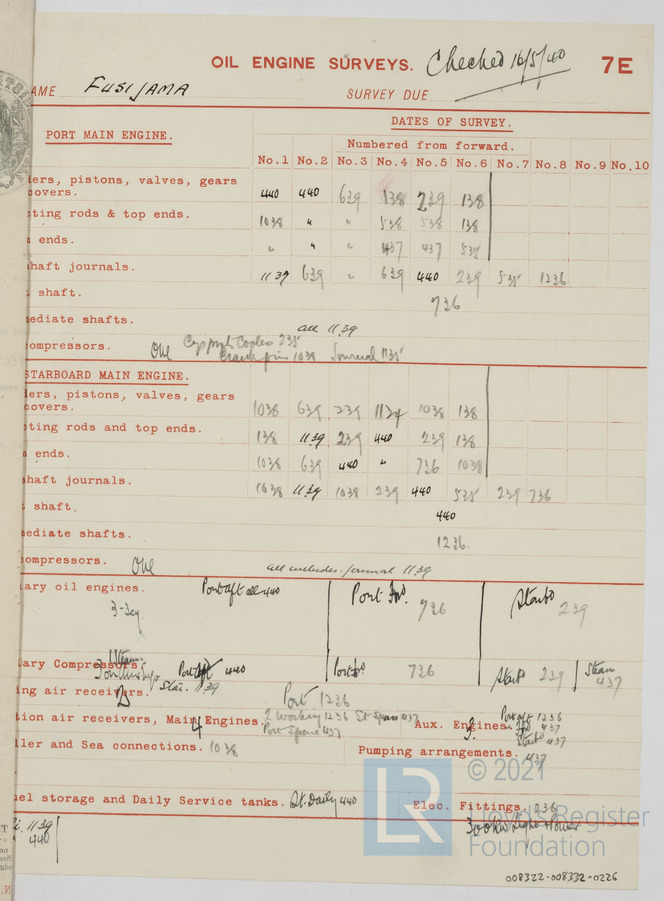 OIL ENGINE SURVEYS. Checked 16/5/40 7E
AME FUSIJAMA SURVEY DUE
DATES OF SURVEY.
PORT MAIN ENGINE.
Numbered from forward.
No.1 No.2 No.3 No.4 No.5 No.6 No.7 No.8 No.9 No.10
ders, pistons, valves, gears
covers. 440 440 639 138 239 138
ting rods & top ends. 1038 " " 538 538 138
ends. " " " 437 437 535
haft journals. 1139 639 " 639 440 239 535 1236
shaft. 736
mediate shafts. all 1139
ompressors. One 235
1038 Journal 1135
STARBOARD MAIN ENGINE.
ders, pistons, valves, gears
covers. 1038 639 239 1134 1038 138
ting rods and top ends. 138 1139 239 440 239 138
ends. 1038 639 440 " 736 1038
haft journals. 1038 1139 1038 239 440 535 239 736
shaft. 440
mediate shafts. 1236.
ompressors. One all includes journal 1139
ary oil engines. Port aft all 440 Port Fwd. 736 Starbd 239
3-
ary Compressors. Port aft 440 Port Fd 736 Starbd 239 Steam 437
ing air receivers. Star. 1139 Port 1236
tion air receivers, Main Engines. 4 2 Working 1236 St Spare 437 Aux. Engines. 3. Port aft 1236
Port Spare 437 Fd 437
Starbd 437
ller and Sea connections. 1038 Pumping arrangements. 437
© 2021
LR
el storage and Daily Service tanks. St. Daily 440 Elec. Fittings. 236
1139
440
Lloyd's Register
Foundation
008322-008332-0226